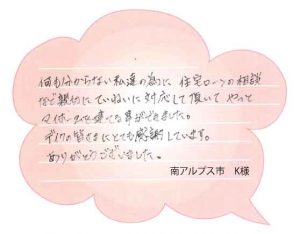 何も分からない私達の為に 住宅ローンの相談
など親切にていねいに対応して頂いて やっと
マイホームを建てる事ができました。
の皆さまにとても感謝しています。
ありがとうございました。
南アルプス市 K様